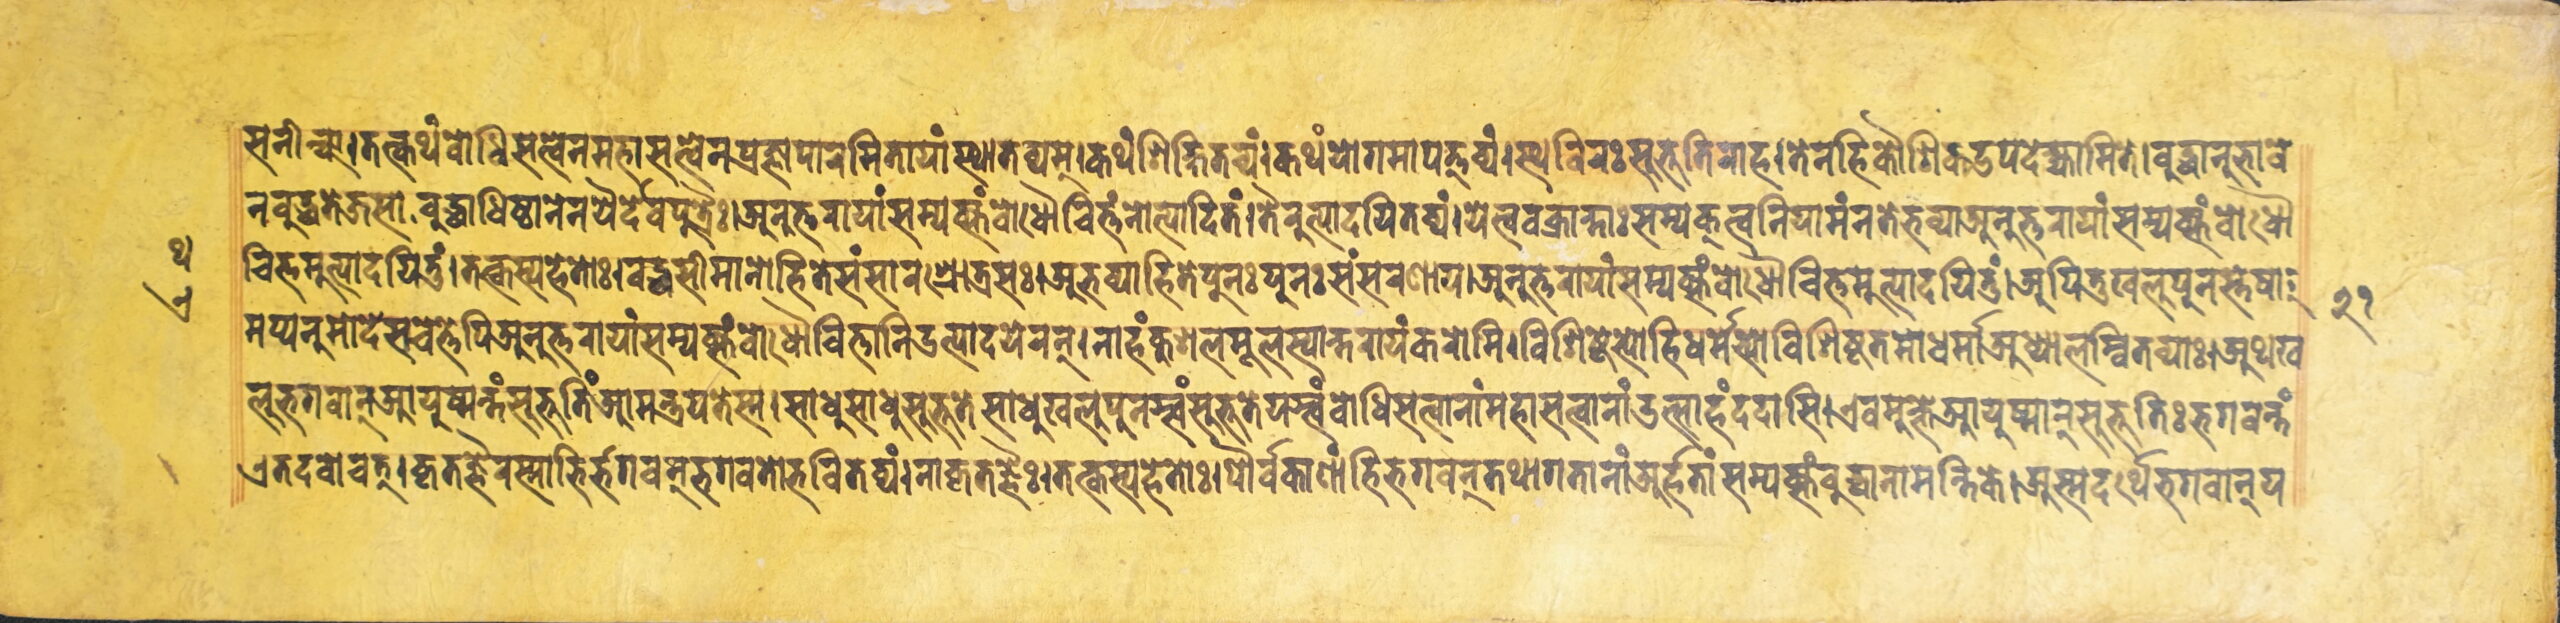 सनीन्द्याः।तत्कथंबोधिसत्वेनमहासत्वेनप्रज्ञापारमितायांस्थातव्यम्।कथंशिक्षितव्यं।कथंयोगमापत्तव्यं।स्थविरःसुभूतिराह।तेनहिकौशिकउपदेक्ष्यामिते।बुद्धानुभावे
नबुद्धतेजसा।बुद्धाधिष्ठानेनयैर्देवपुत्रैः।अनुत्तरायांसम्यक्संबोधौचित्तंनोत्पादितं।तैरुत्पादयितव्यं।येत्ववक्रान्ताःसम्यक्त्वनियामंनतेभव्याअनुत्तरायांसम्यक्संबोधौ
चित्तमुत्पादयितुं।तत्कस्यहेतोः।बद्धसीमानोहितेसंसारश्रोत्रसः।अभव्याहितेपुनःपुनःसंसरणाय।अनुत्तरायांसम्यक्संबोधौचित्तमुत्पादयितुं।अपितुखलुपुनस्तेषा
मप्यनुमोदेसचेत्तेपिअनुत्तरायांसम्यक्संबोधौचित्तानिउत्पादयेरन्।नाहंकुशलमूलस्यान्तरायंकरोमि।विशिष्टेभ्योहिधर्मेभ्योविशिष्टतमोधर्माअध्यालम्बितव्याः।अथख
लुभगवान्आयुष्मन्तंसुभूतिंआमन्त्रयतेस्म।साधुसाधुसुभूतेसाधुखलुपुनस्त्वंसुभूतेयस्त्वंबोधिसत्वानांमहासत्वानांउत्साहंददासि।एवमुक्तेआयुष्मान्सुभूतिःभगवन्तं
एतदवोचत्।कृतज्ञैरस्माभिर्भगवन्भगवतोभवितव्यं।नाकृतज्ञैः।तत्कस्यहेतोः।पौर्वकाणांहिभगवन्तथागतानांअर्हतांसम्यक्संबुद्धानामन्तिके।अस्मदर्थेभगवान्य
२१